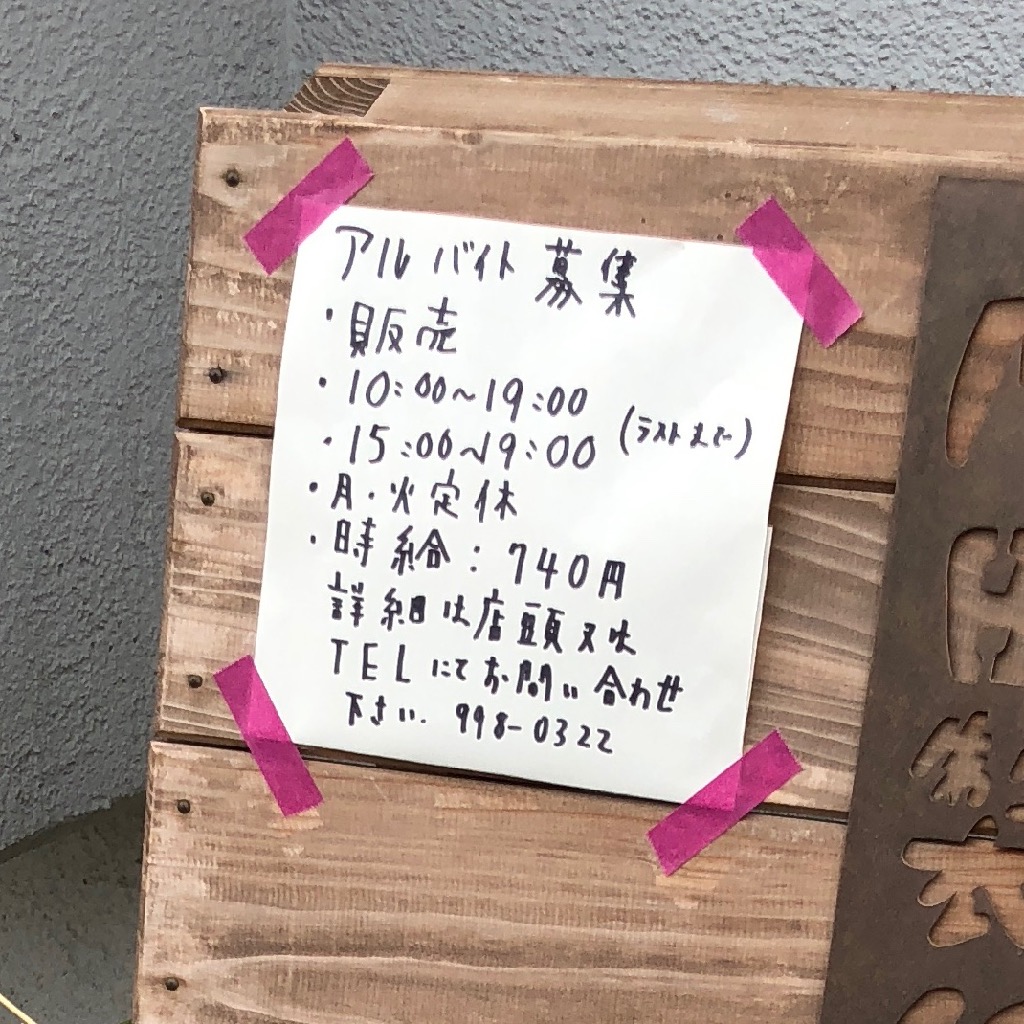 アルバイト募集
・販売
・10:00〜19:00
・15:00〜19:00 (ラストまで)
・月・火定休
・時給:740円
詳細は店頭又は
TELにてお問い合わせ
下さい. 998-0322